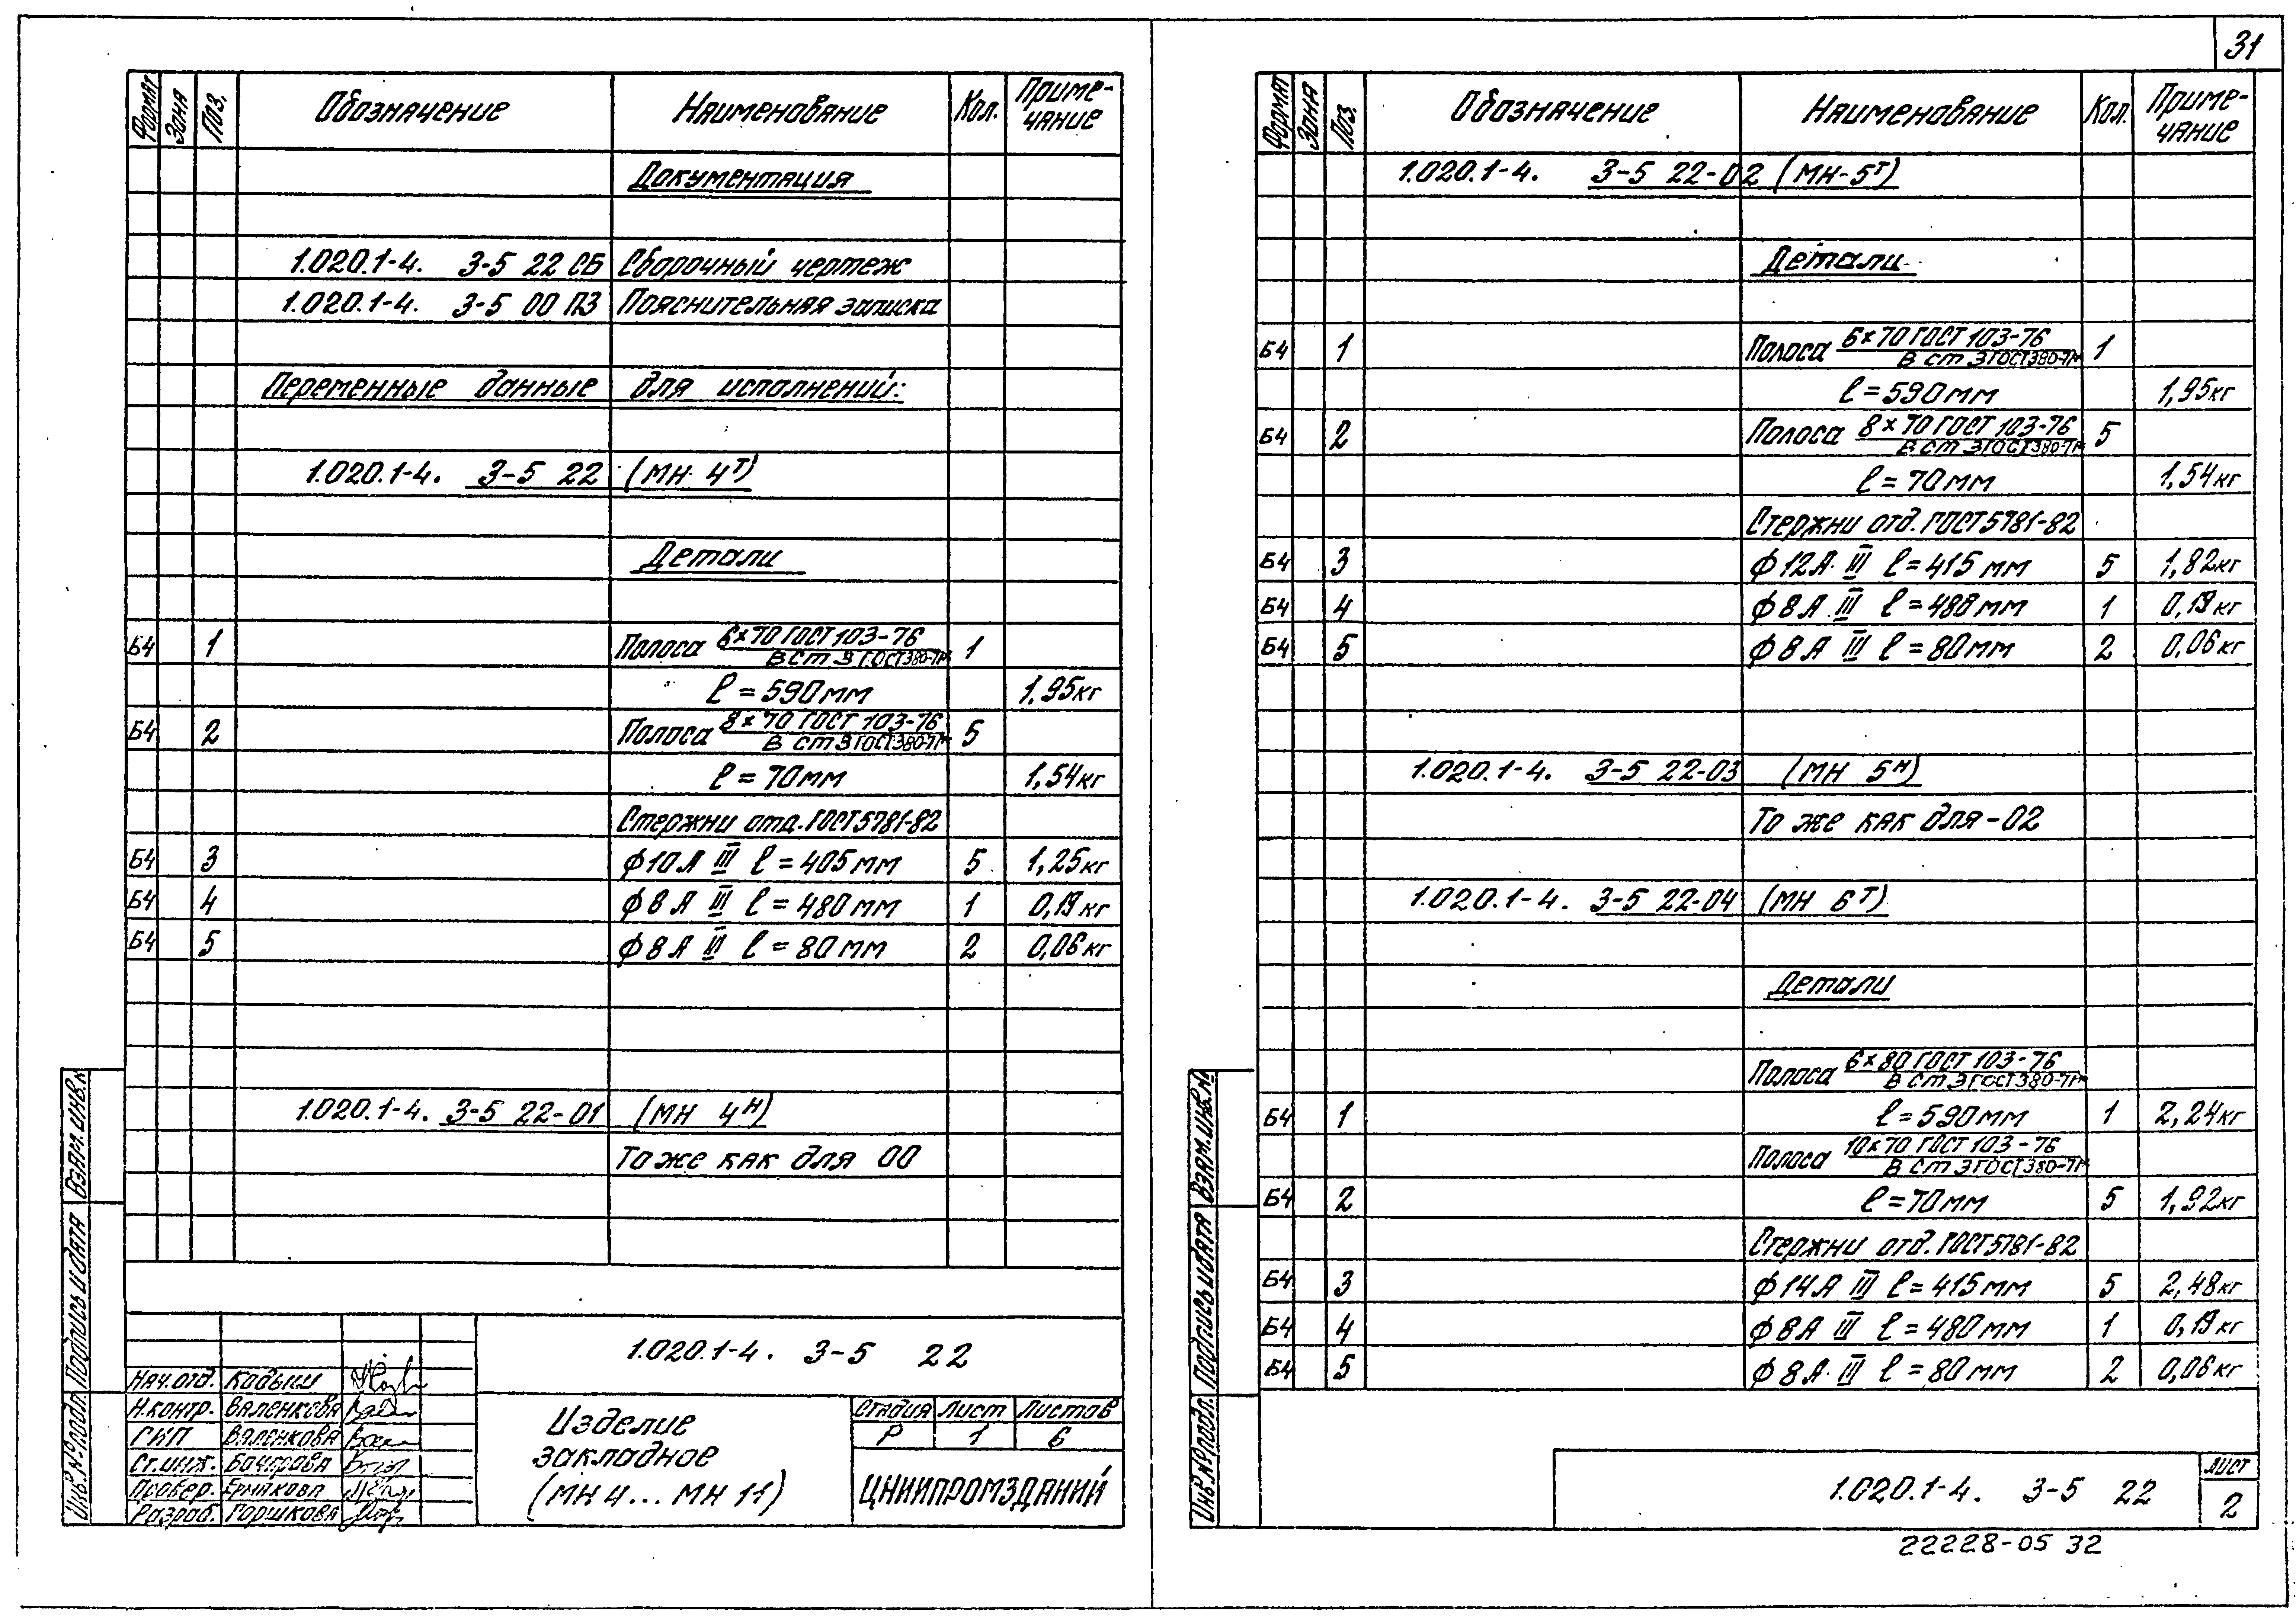 31
Формат Зона Поз. Обозначение Наименование Кол. Приме-
чание
Документация
1.020.1-4. 3-5 22 СБ Сборочный чертеж
1.020.1-4. 3-5 00 ПЗ Пояснительная записка
Переменные данные для исполнений:
1.020.1-4. 3-5 22 (МН 4Т)
Детали
Б4 1 Полоса 6×70 ГОСТ 103-76 1
В ст 3 ГОСТ 380-71*
ℓ = 590 мм 1,95 кг
Б4 2 Полоса 8×70 ГОСТ 103-76 5
В ст 3 ГОСТ 380-71*
ℓ = 70 мм 1,54 кг
Стержни отд. ГОСТ 5781-82
Б4 3 ф10А III ℓ = 405 мм 5 1,25 кг
Б4 4 ф8А III ℓ = 480 мм 1 0,19 кг
Б4 5 ф8А III ℓ = 80 мм 2 0,06 кг
1.020.1-4. 3-5 22-01 (МН 4Н)
То же как для 00
Взам. инв. №
Подпись и дата
Инв. № подл.
1.020.1-4. 3-5 22
Нач. отд. Кодыш
Н. контр. Валенкова
ГИП Валенкова
Ст. инж.
Провер. Ермакова
Разраб. Горшкова
Изделие
закладное
(МН 4... МН 11)
Стадия Лист Листов
Р 1 6
ЦНИИПРОМЗДАНИЙ
Формат Зона Поз. Обозначение Наименование Кол. Приме-
чание
1.020.1-4. 3-5 22-02 (МН-5Т)
Детали
Б4 1 Полоса 6×70 ГОСТ 103-76 1
В ст 3 ГОСТ 380-71*
ℓ = 590 мм 1,95 кг
Б4 2 Полоса 8×70 ГОСТ 103-76 5
В ст 3 ГОСТ 380-71*
ℓ = 70 мм 1,54 кг
Стержни отд. ГОСТ 5781-82
Б4 3 ф12А III ℓ = 415 мм 5 1,82 кг
Б4 4 ф8А III ℓ = 480 мм 1 0,19 кг
Б4 5 ф8А III ℓ = 80 мм 2 0,06 кг
1.020.1-4. 3-5 22-03 (МН 5Н)
То же как для -02
1.020.1-4. 3-5 22-04 (МН 6Т)
Детали
Полоса 6×80 ГОСТ 103-76
В ст 3 ГОСТ 380-71*
Б4 1 ℓ = 590 мм 1 2,24 кг
Полоса 10×70 ГОСТ 103-76
В ст 3 ГОСТ 380-71*
Б4 2 ℓ = 70 мм 5 1,92 кг
Стержни отд. ГОСТ 5781-82
Б4 3 ф14А III ℓ = 415 мм 5 2,48 кг
Б4 4 ф8А III ℓ = 480 мм 1 0,19 кг
Б4 5 ф8А III ℓ = 80 мм 2 0,06 кг
Взам. инв. №
Подпись и дата
Инв. № подл.
1.020.1-4. 3-5 22
Лист
2
22228-05 32